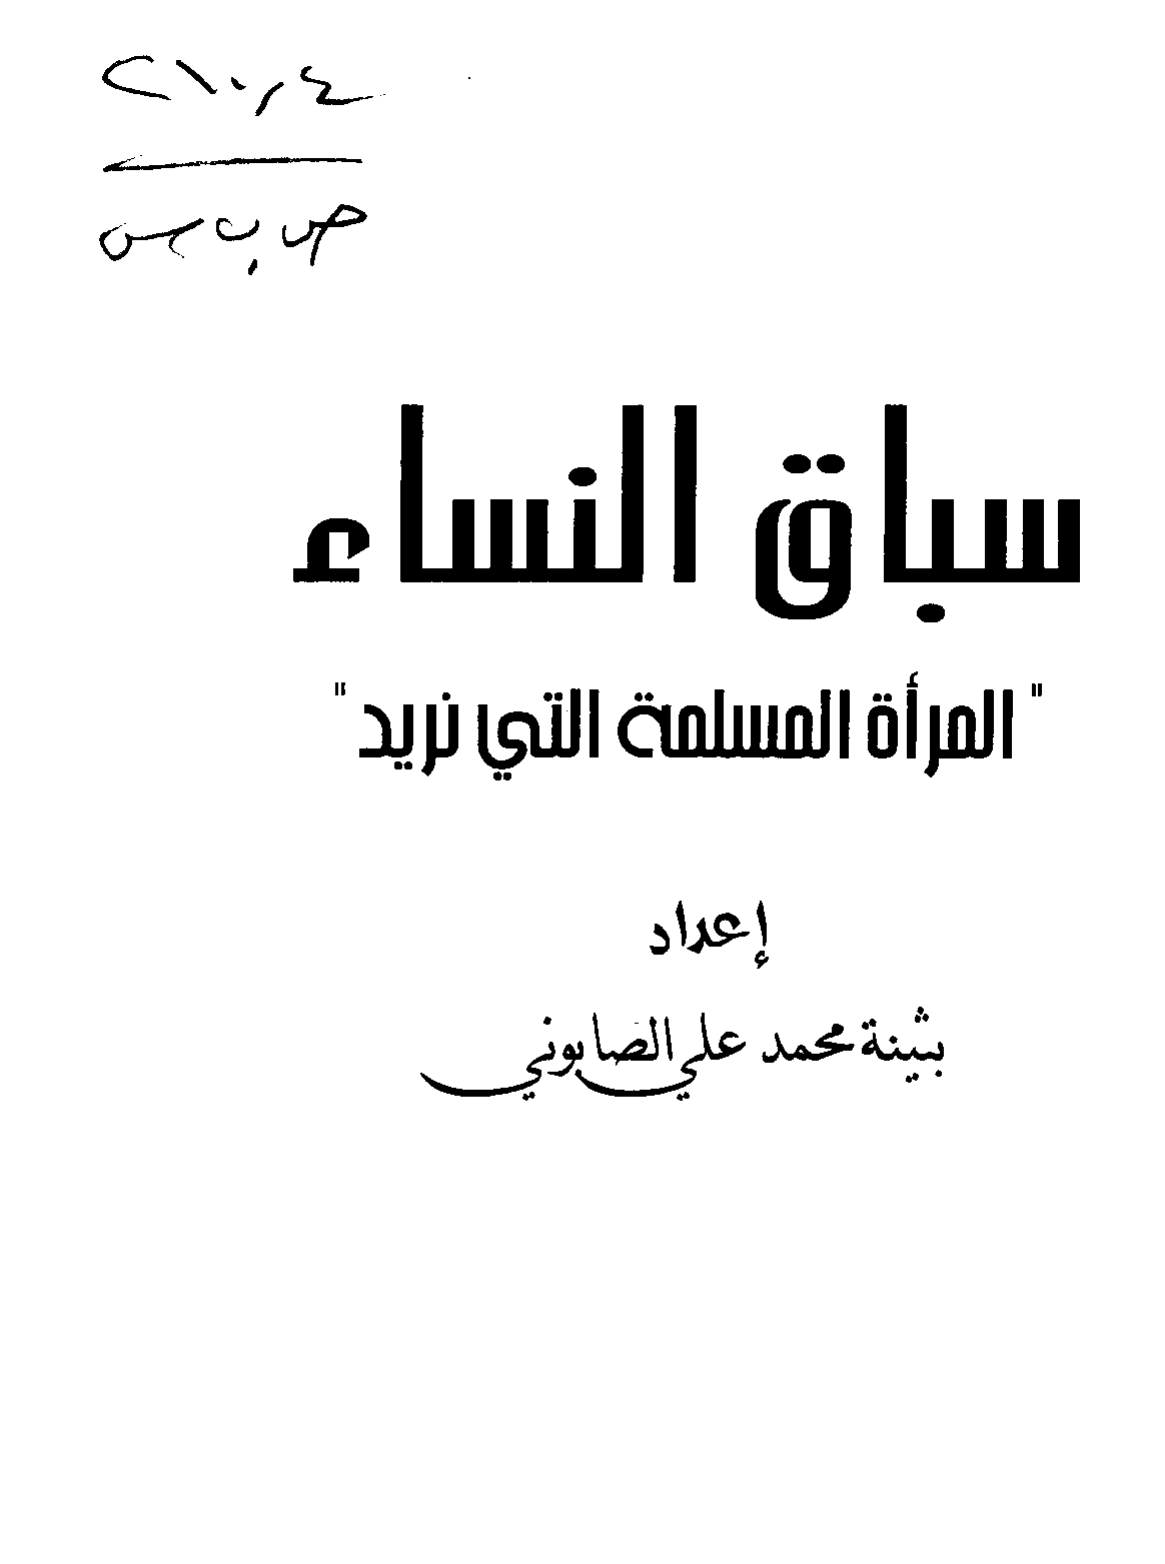 سباق النساء
" المرأة المسلمة التي نريد "
إعداد
بثينة محمد علي الصابوني